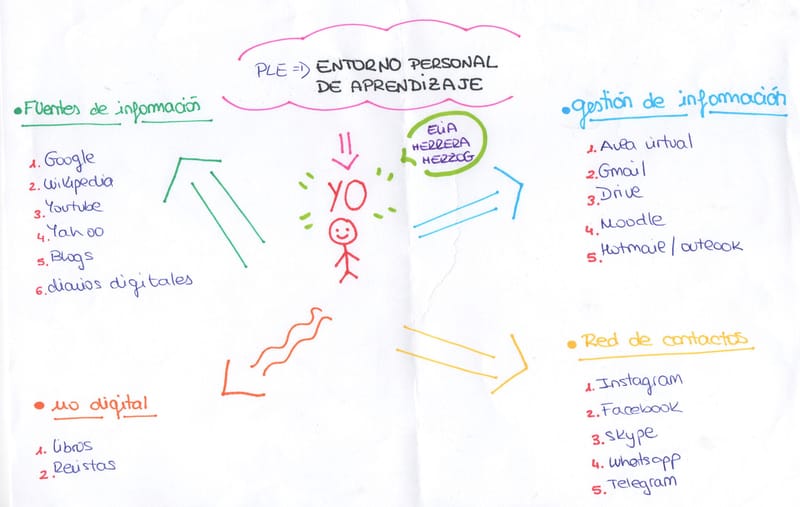 PLE => ENTORNO PERSONAL
DE APRENDIZAJE
• Fuentes de información
1. Google
2. Wikipedia
3. Youtube
4. Yahoo
5. Blogs
6. diarios digitales
ELIA
HERRERA
HERZOG
YO
• gestión de información
1. Aula virtual
2. Gmail
3. Drive
4. Moodle
5. Hotmail / outlook
• no digital
1. libros
2. Revistas
• Red de contactos
1. Instagram
2. Facebook
3. Skype
4. whatsapp
5. Telegram